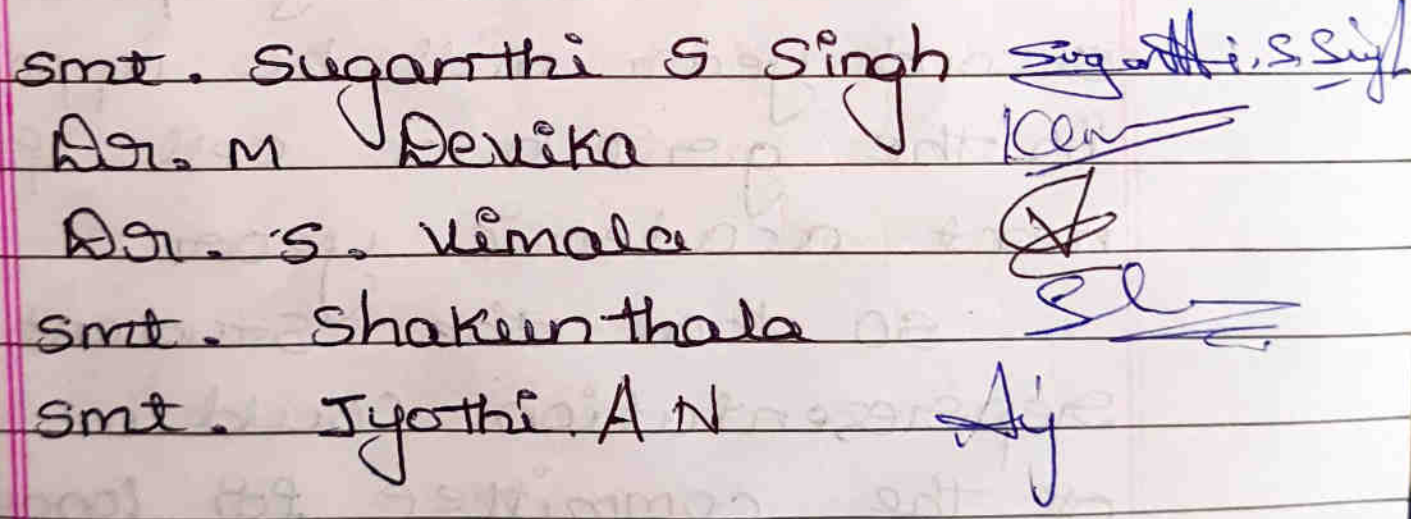 Smt. Suganthi S Singh Suganthi. S. Singh
Dr. M Devika
Dr. S. Vimala
Smt. Shakunthala
Smt. Jyothi. A N